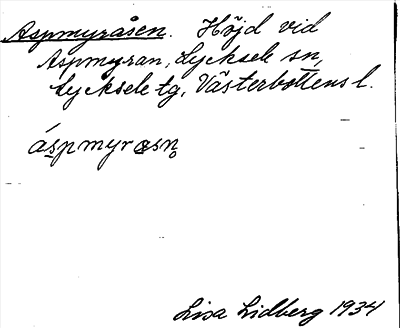 Aspmyråsen. Höjd vid
Aspmyran, Lycksele sn,
Lycksele tg, Västerbottens l.
áspmyrɑsn̥
Lisa Lidberg 1934